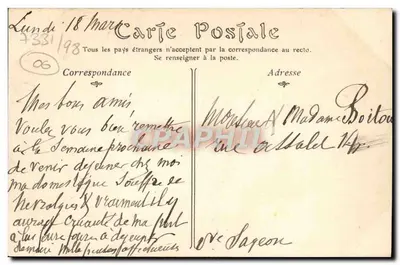 Lundi 18 Mars
Carte Postale
Tous les pays étrangers n'acceptent pas la correspondance au recto.
Se renseigner à la poste.
06
Correspondance
Adresse
Mes bons amis
Voulez vous bien remettre
à la Semaine prochaine
de venir dejeuner chez moi
ma domestique Souffre de
nevralgies & vraiment il y
aurait cruauté de ma part
à lui faire faire à dejeuner
Monsieur & Madame Boitou
rue